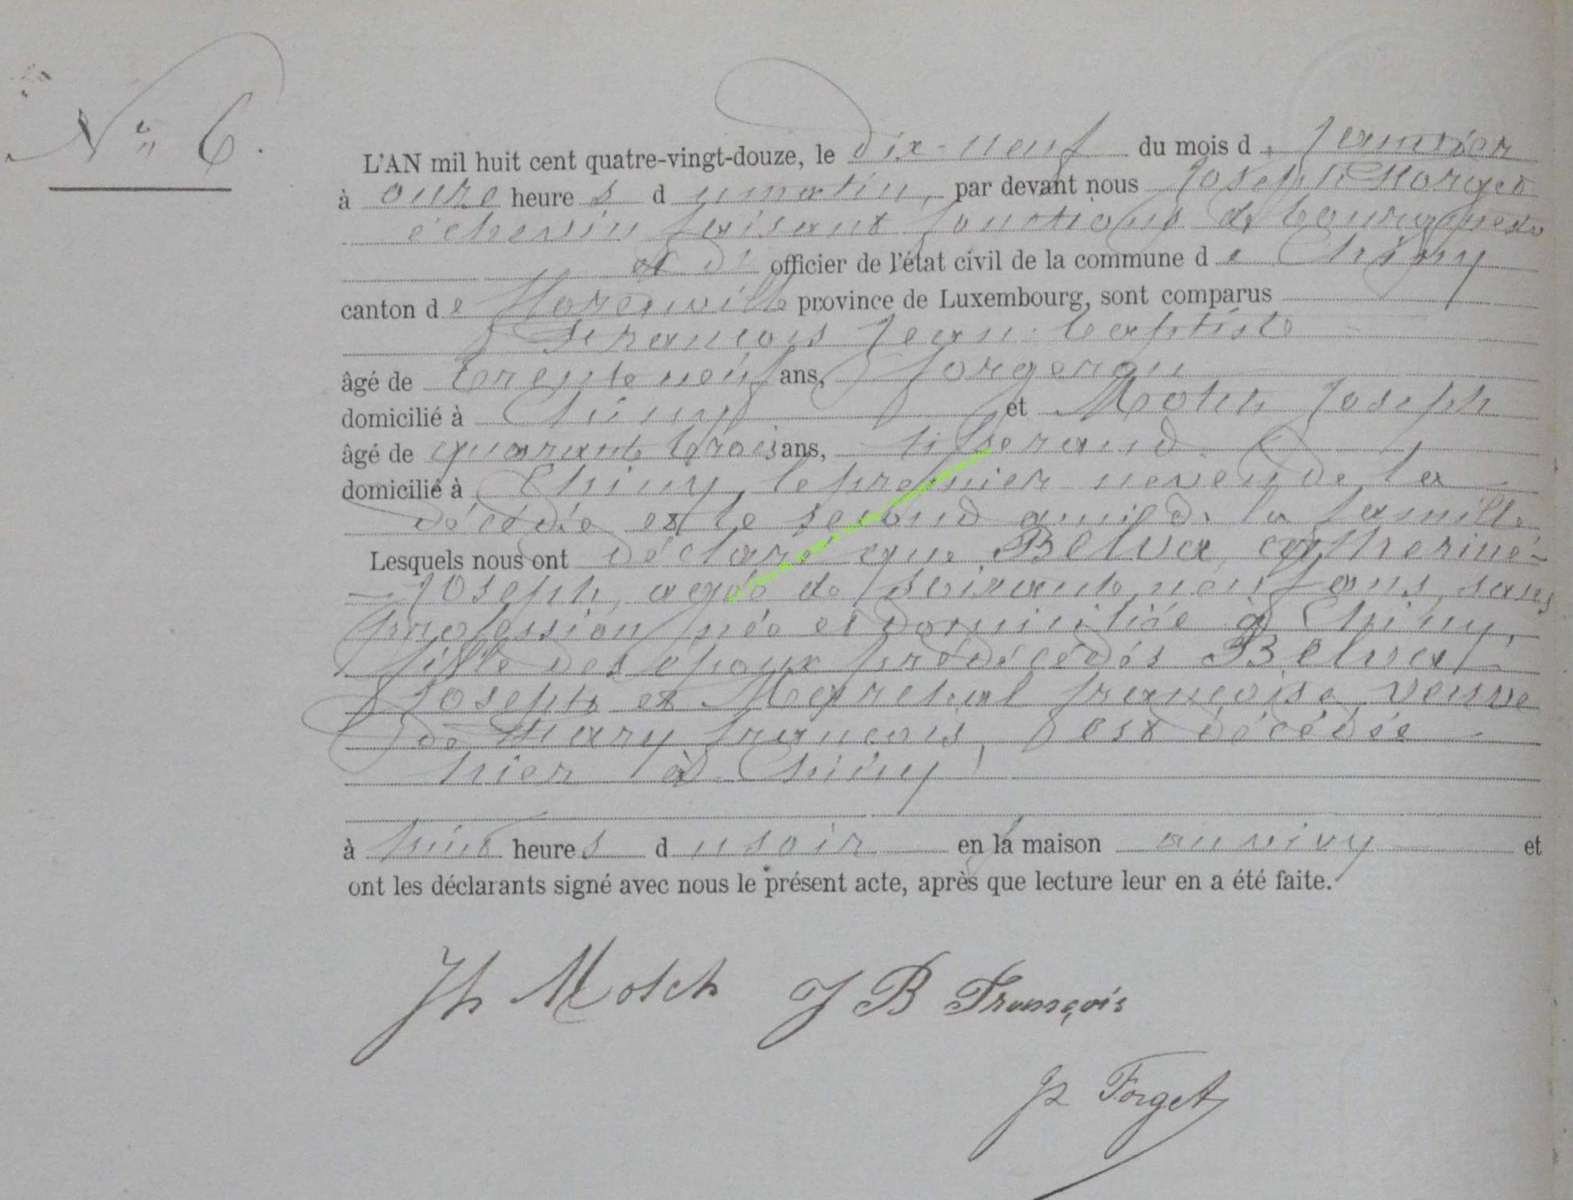 N° 6.
L'AN mil huit cent quatre-vingt-douze, le dix-neuf du mois d Janvier
à onze heures du matin, par devant nous Joseph Forget
échevin faisant fonctions de bourgmestre
et d' officier de l'état civil de la commune de Chiny
canton de Florenville province de Luxembourg, sont comparus
François Jean-Baptiste
âgé de trente neuf ans, forgeron
domicilié à Chiny et Motch Joseph
âgé de quarante trois ans, tisserand
domicilié à Chiny, le premier neveu de la
décédée et le second ami de la famille
Lesquels nous ont déclaré que Belva, catherine-
Joseph, agée de soixante neuf ans, sans
profession née et domiciliée à Chiny,
fille des époux prédécédés Belva
Joseph et Marchal françoise, veuve
de françois, est décédée
hier à Chiny
à huit heures du soir en la maison et
ont les déclarants signé avec nous le présent acte, après que lecture leur en a été faite.
Jh Motch J B François
Jh Forget